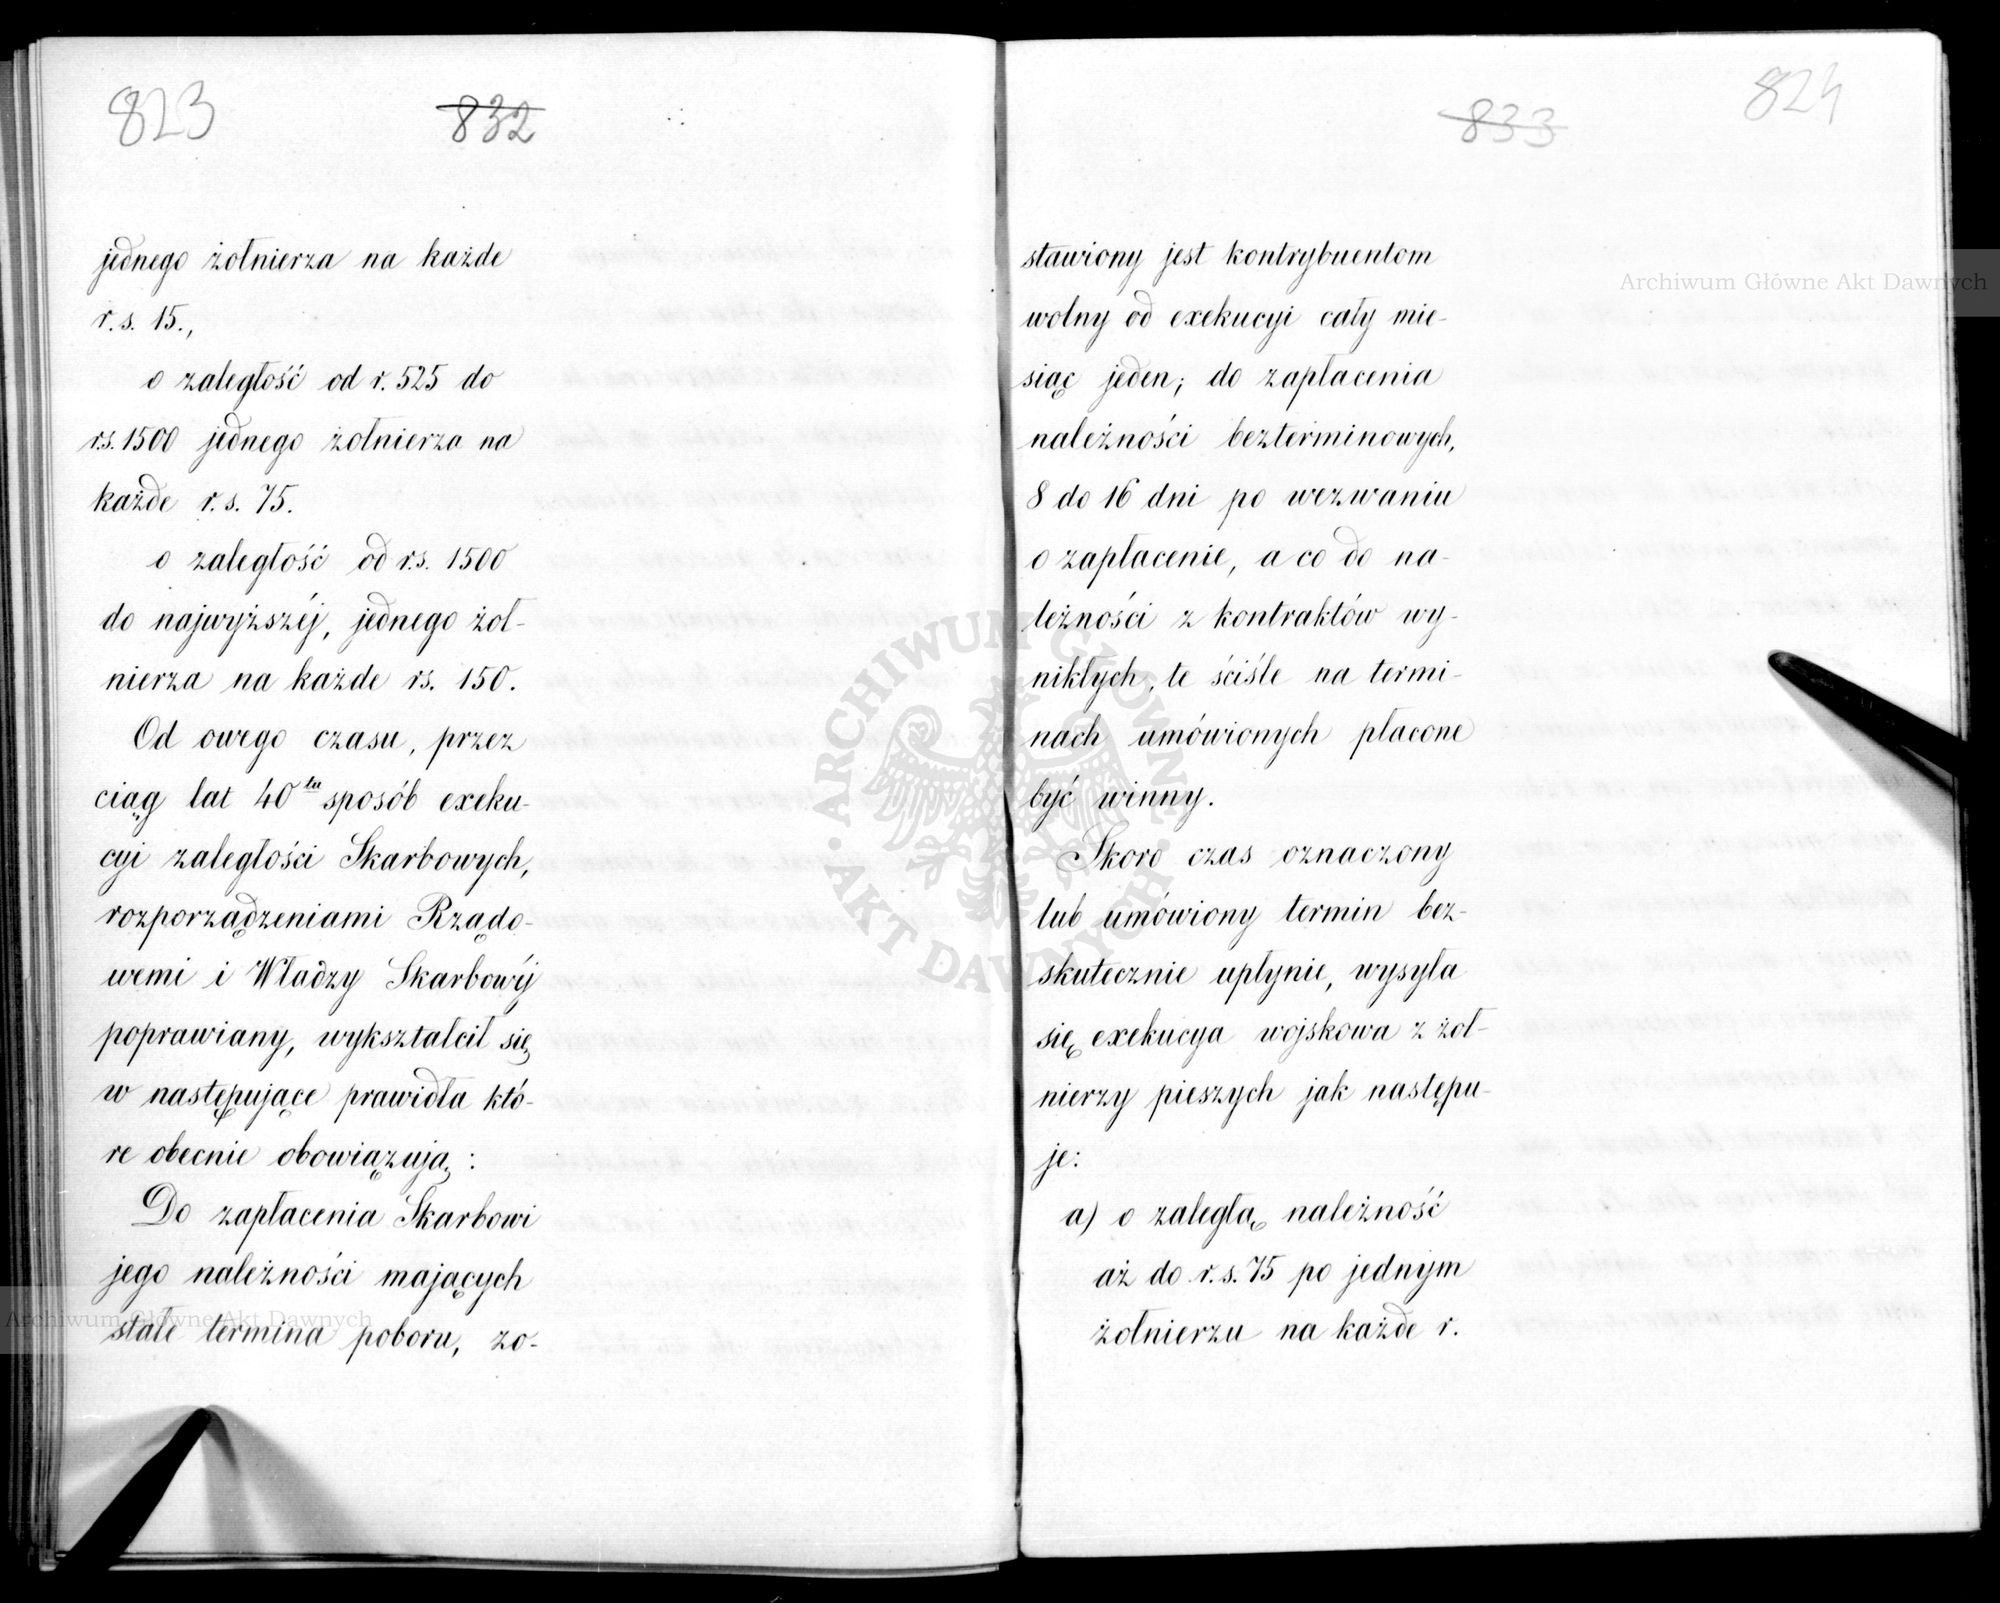 823
832
jednego żołnierza na każde
r. s. 15.,
o zaległość od r. 525 do
rs. 1500 jednego żołnierza na
każde r. s. 75.
o zaległość od r.s. 1500
do najwyższéj, jednego żoł-
nierza na każde rs. 150.
Od owego czasu, przez
ciąg lat 40tu sposób exeku-
cyi zaległości Skarbowych,
rozporządzeniami Rządo-
wemi i Władzy Skarbowéj
poprawiany, wykształcił się
w następujące prawidła któ-
re obecnie obowiązują :
Do zapłacenia Skarbowi
jego należności mających
stałe termina poboru, zo-
833
824
stawiony jest kontrybuentom
wolny od exekucyi cały mie-
siąc jeden; do zapłacenia
należności bezterminowych,
8 do 16 dni po wezwaniu
o zapłacenie, a co do na-
leżności z kontraktów wy-
nikłych, te ściśle na termi-
nach umówionych płacone
być winny.
Skoro czas oznaczony
lub umówiony termin bez-
skutecznie upłynie, wysyła
się exekucya wojskowa z żoł-
nierzy pieszych jak następu-
je:
a) o zaległą należność
aż do r. s. 75 po jednym
żołnierzu na każde r.
Archiwum Główne Akt Dawnych
ARCHIWUM GŁÓWNE
AKT DAWNYCH
Archiwum Główne Akt Dawnych